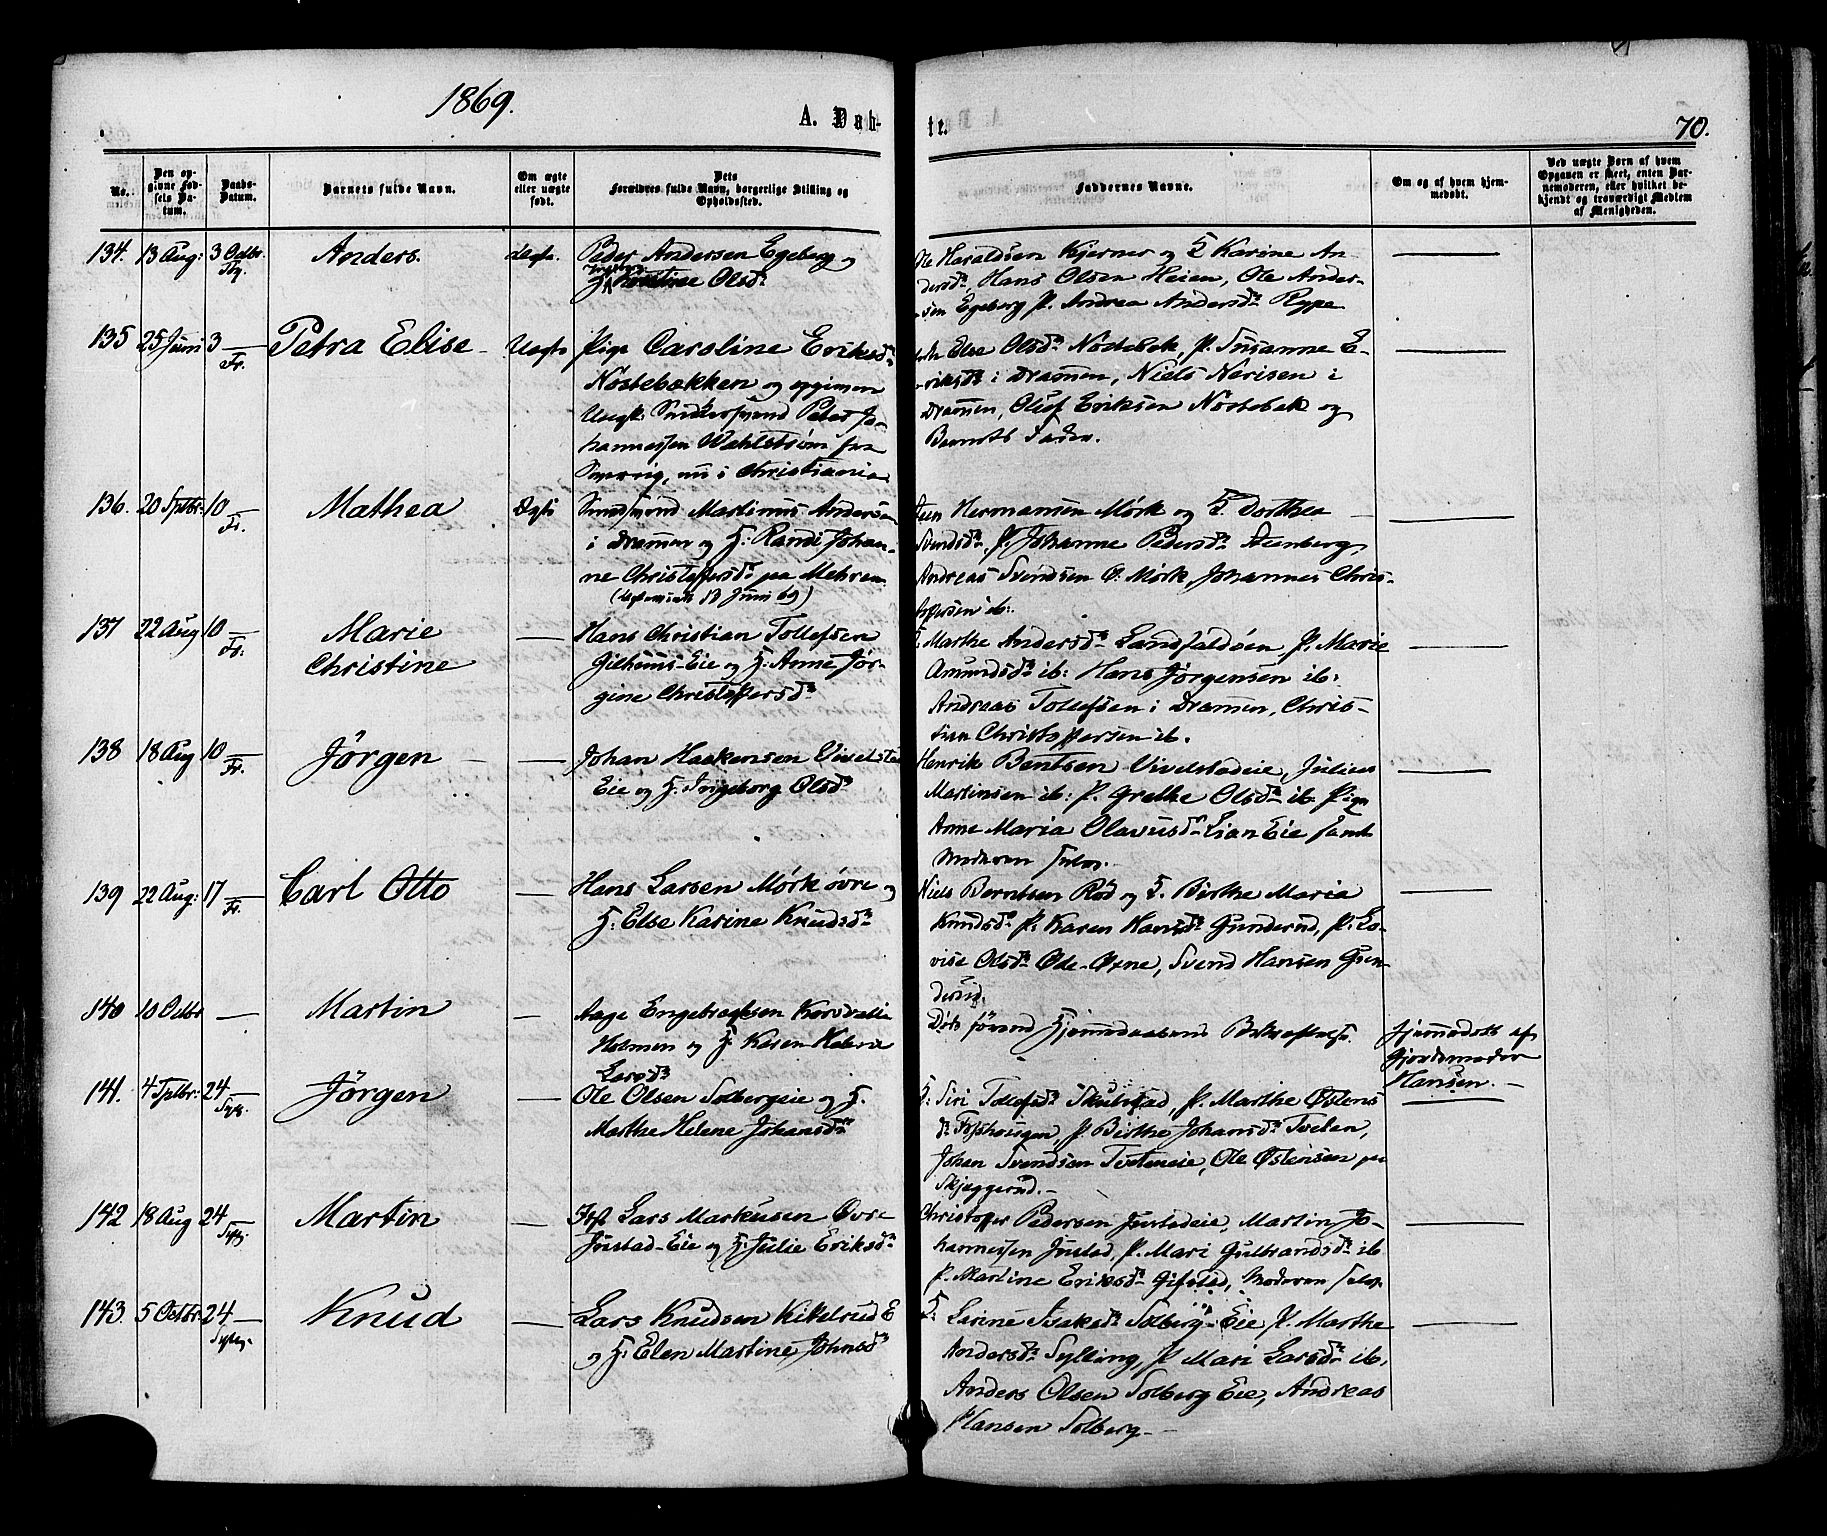 1869.
A. Døb-
te.
70.
No.
Den op-
givne Fød-
sels Da-
tum.
Daabs-
Datum.
Barnets fulde Navn.
Om ægte
eller uægte
født.
Dets
Forældres fulde Navn, borgerlige Stilling og
Opholdssted.
Faddernes Navne.
Om og af hvem hjem-
medøbt.
Ved uægte Børn af hvem
Opgaven er skeet, enten Bar-
nemoderen, eller hvilket be-
kjendt og troværdigt Medlem
af Menigheden.
134. 13 Aug: 3 Octbr. Anders. Ægte.
Peder Andersen Egeberg og
Olsdr
Ole Haraldsen Kjerner og H Karine An-
dersdr, Hans Olsen Heien, Ole Ander-
sen Egeberg P. Andrea Andersdr Rype
135 25 Juni 3 — Fr. Petra Elise Uægte
Pige Caroline Eriksdr
Nøstebækken og opgiven
Snedkersvend Peter Jo-
hannessen Wahlstrøm fra
nu i Christiania
Else Olsdr Nøstebæk, P. Susanne E-
riksdr i Drammen, Niels Narisen i
Drammen, Oluf Eriksen Nøstebæk og
Barnets Fader.
136. 20 Septbr: 10 — Fr. Mathea Ægte
Martinus Andersen
i Drammen og H: Randi Johan-
ne Christophersdr paa Mehren
13 Juni 69)
Hermansen Mørk og H. Dorthea
Svendsdr, P. Johanne Pedersdr Steenberg,
Andreas Svendsen Ø. Mørk, Johannes Chris-
tophersen ib:
137 22 Aug 10 — Fr: Marie
Christine —
Hans Christian Tollefsen
Gilhuus-Eie og H. Anne Jør-
gine Christophersdr
H: Marthe Andersdr Landfaldøen, P. Marie
Amundsdr ib: Hans Jørgensen ib:
Andreas Tollefsen i Drammen, Chris-
tian Christophersen ib.
138 18 Aug 10 — Fr. Jørgen —
Johan Haakensen Vivelstad
Eie og H. Ingeborg Olsdr
Henrik Bentsen Vivelstadeie, Julius
Martinsen ib: P. Grethe Olsdr ib. Pige
Anne Maria Olavusdr Lian Eie samt
Moderen selv.
139 22 Aug: 17 — Fr. Carl Otto —
Hans Larsen Mørk øvre og
H: Else Karine Knudsdr
Niels Berntsen Rød og H. Birthe Maria
Knudsdr P. Karen Hansdr Gunderud, P. Lo-
vise Olsdr Øde-Øxne, Svend Hansen Gun-
derud.
140 10 Octbr — Martin —
Aage Engebregtsen
Holmen og H Karen
Larsdr
Døde førend Hjemmedaabens Bekræftelse.
Hjemmedøbt af
Gjordemoder
Hansen. —
141. 4 Sptbr: 24 — Jørgen —
Ole Olsen Solbergeie og H.
Marthe Helene Johansdr
H: Siri Tollefsdr Skulstad, P. Marthe Østens
dr P. Birthe Johansdr Tveten,
Johan Svendsen Tveteneie, Ole Østensen paa
Skjæggerud. —
142 18 Aug 24 — Martin —
Lars Markusen Øvre
Justad-Eie og H. Julie Eriksdr
Christopher Pedersen Justadeie, Martin Jo-
hannessen Justad, P. Mari Gulbrandsdr ib
P. Martine Eriksdr Gifstad, Moderen selv
143. 5 Octbr: 24 — Knud —
Lars Knudsen Kikelrud E
og H: Elen Martine Johnsdr
H: Larine Isaksdr Solberg-Eie P. Marthe
Andersdr Sylling, P Mari Larsdr ib.
Anders Olsen Solberg Eie, Andreas
Hansen Solberg —